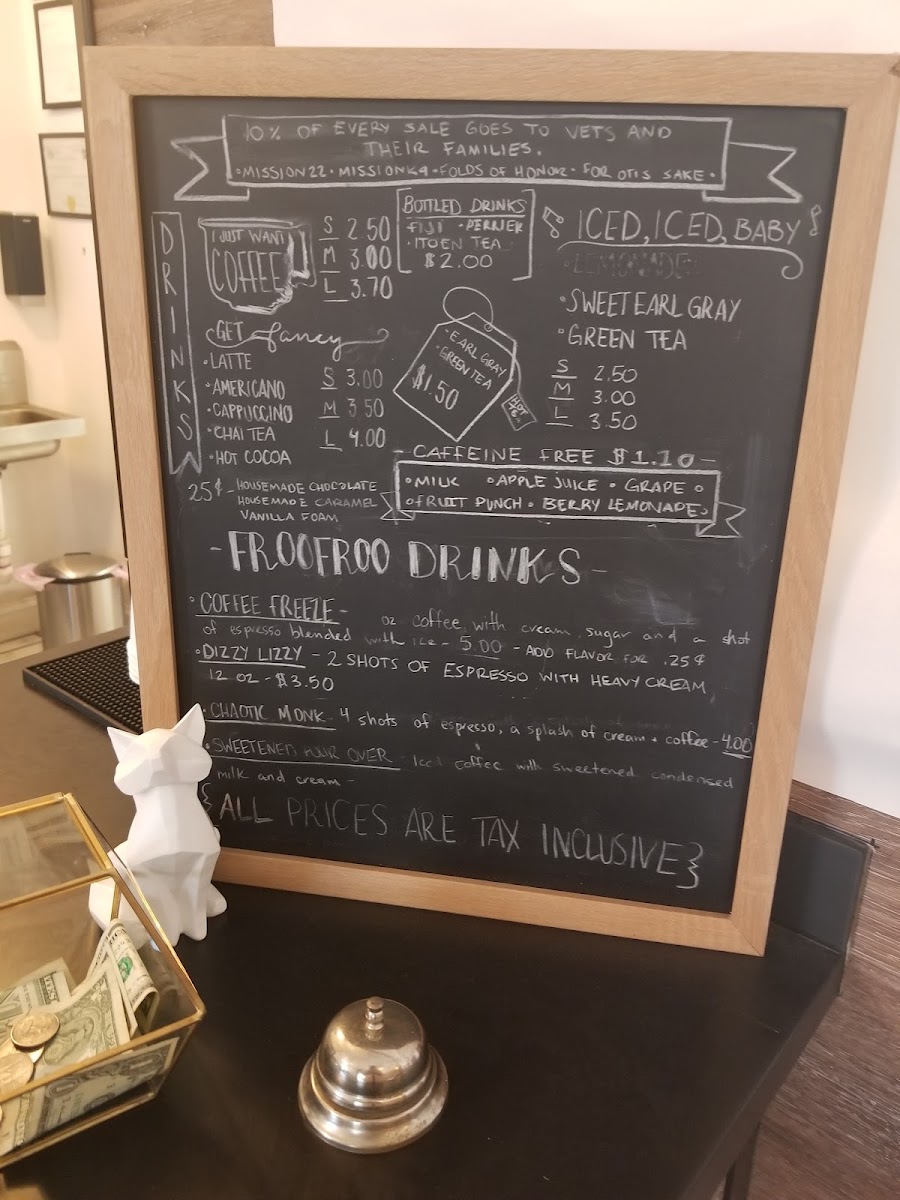 10% OF EVERY SALE GOES TO VETS AND
THEIR FAMILIES.
•MISSION22•MISSIONK9•FOLDS OF HONOR•FOR OTIS SAKE•
DRINKS
I JUST WANT
COFFEE
S 2.50
M 3.00
L 3.70
BOTTLED DRINKS
FIJI •PERRIER
•ITOEN TEA
$2.00
ICED, ICED, BABY
•LEMONADE
•SWEET EARL GRAY
•GREEN TEA
S 2.50
M 3.00
L 3.50
GET fancy
•LATTE
•AMERICANO
•CAPPUCCINO
•CHAI TEA
•HOT COCOA
S 3.00
M 3.50
L 4.00
•EARL GRAY
•GREEN TEA
$1.50
HOT
25¢ - HOUSEMADE CHOCOLATE
HOUSEMADE CARAMEL
VANILLA FOAM
- CAFFEINE FREE $1.10 -
•MILK •APPLE JUICE •GRAPE •
•FRUIT PUNCH • BERRY LEMONADE•
-FROOFROO DRINKS-
•COFFEE FREEZE - oz coffee, with cream, sugar and a shot
of espresso blended with ice - 5.00 - ADD FLAVOR FOR .25¢
•DIZZY LIZZY - 2 SHOTS OF ESPRESSO WITH HEAVY CREAM,
12 OZ - $3.50
•CHAOTIC MONK- 4 shots of espresso, a splash of cream + coffee - 4.00
•SWEETENED POUR OVER - Iced coffee with sweetened condensed
milk and cream -
{ALL PRICES ARE TAX INCLUSIVE}